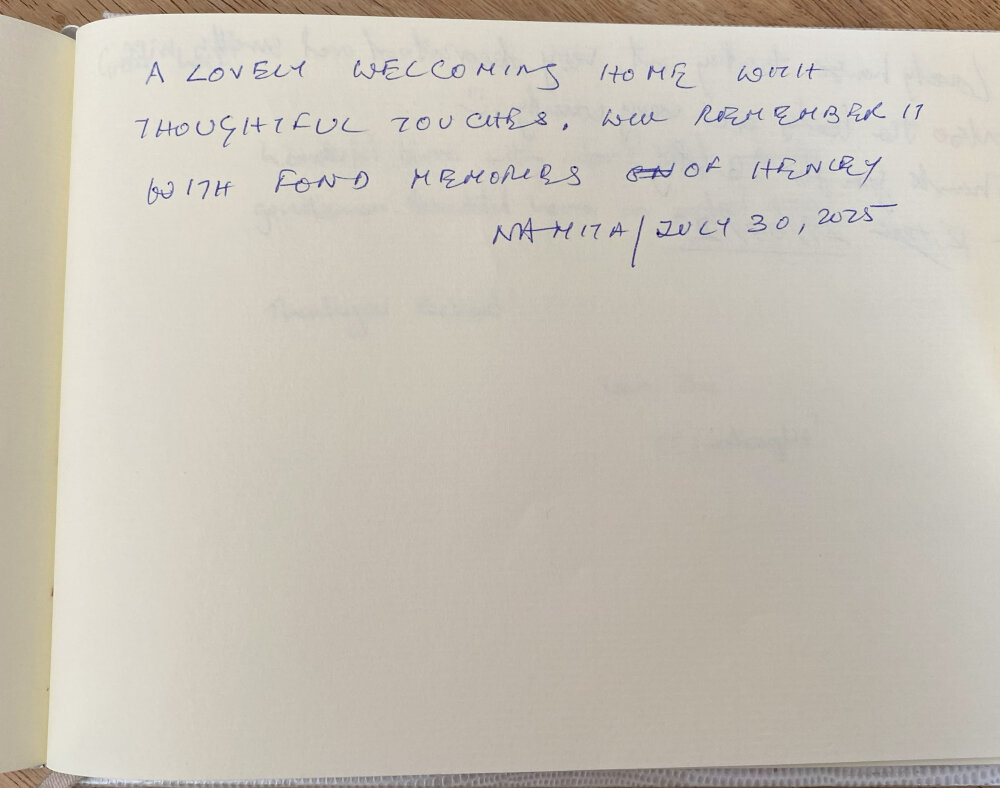 A LOVELY WELCOMING HOME WITH
THOUGHTFUL TOUCHES. WILL REMEMBER IT
WITH FOND MEMORIES OF HENLEY
NAMITA/JULY 30, 2025